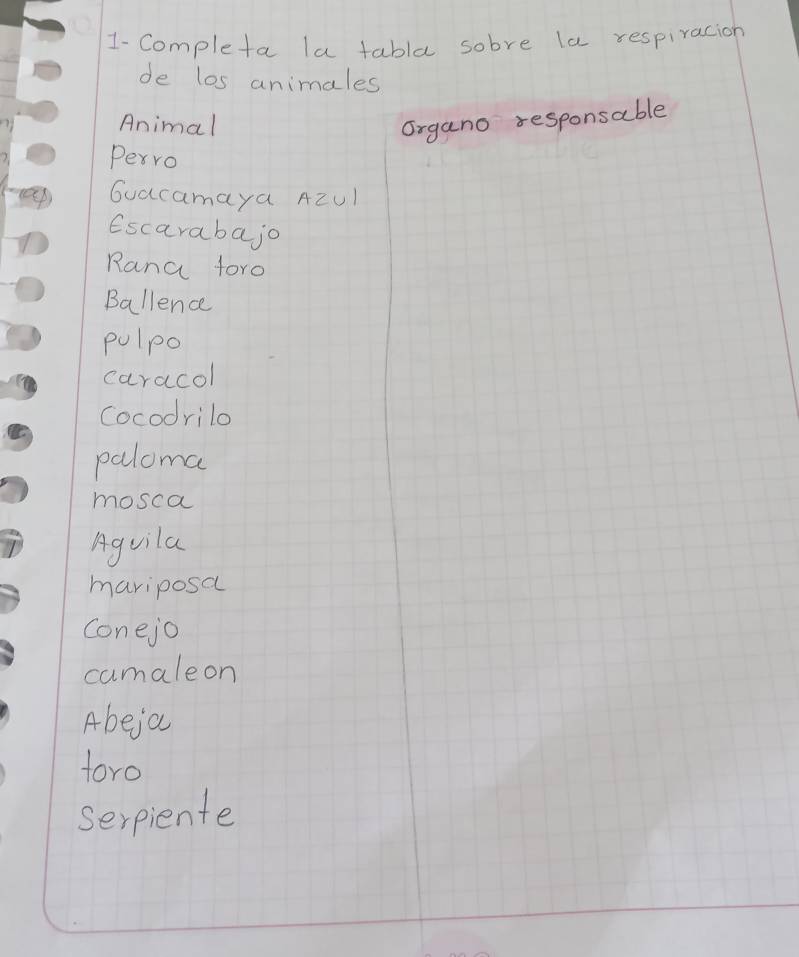 1- Completa la tabla sobre la respiracion
de los animales
Animal organo responsable
Perro
Guacamaya Azul
Escarabajo
Rana toro
Ballena
pulpo
caracol
Cocodrilo
paloma
mosca
Aguila
mariposa
Conejo
camaleon
Abeja
toro
serpiente